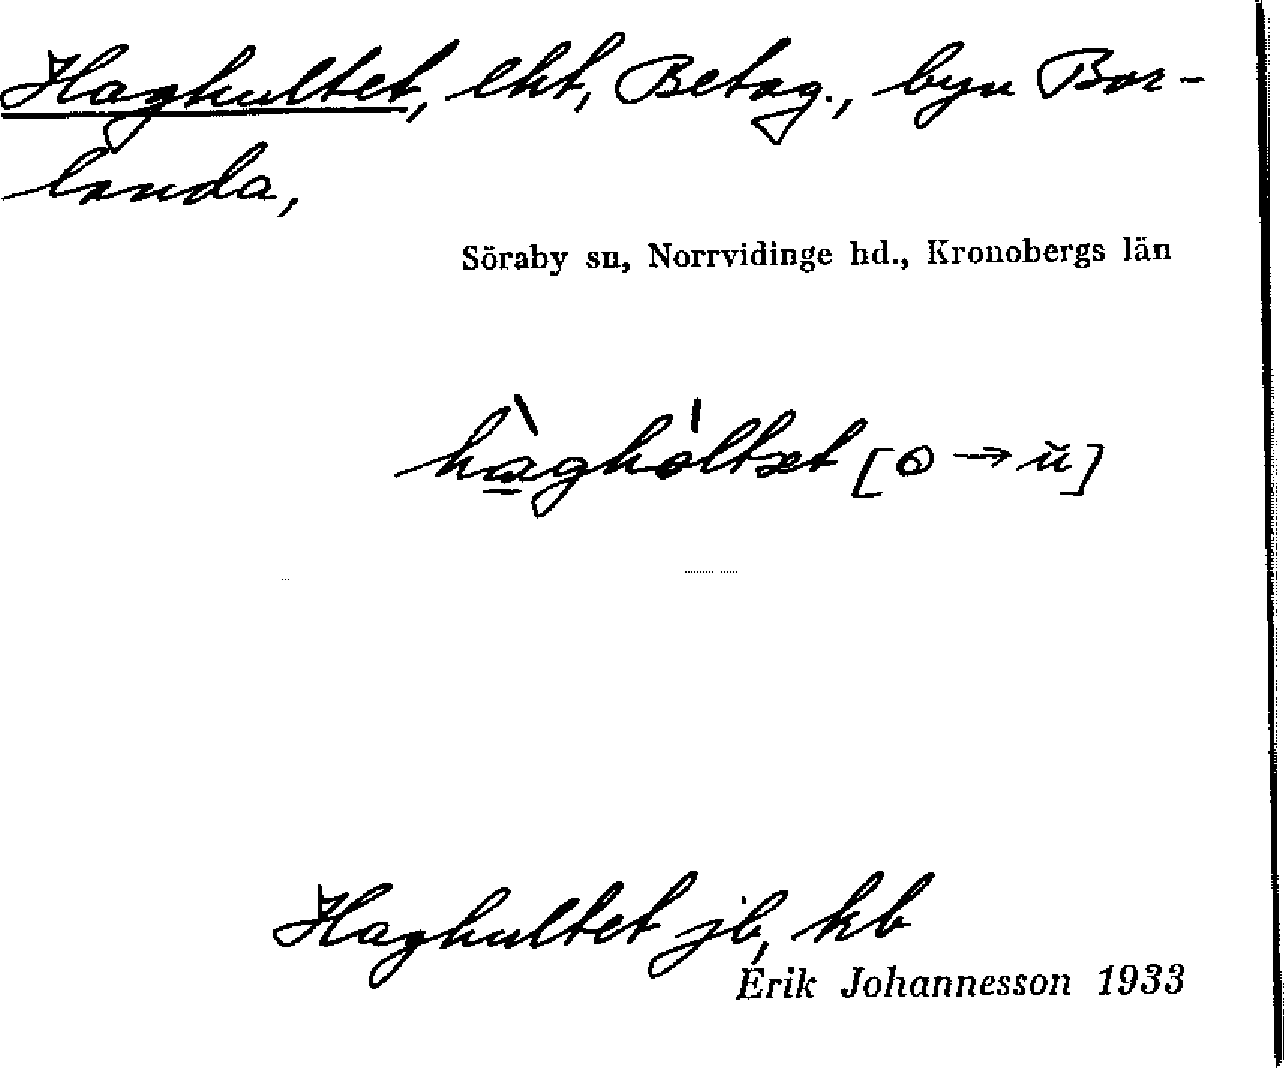 Haghultet, lht, Betag., byn Bor-
landa,
Söraby sn, Norrvidinge hd., Kronobergs län
hàghóltæt [o → ŭ]
Haghultet jb, kb
Erik Johannesson 1933